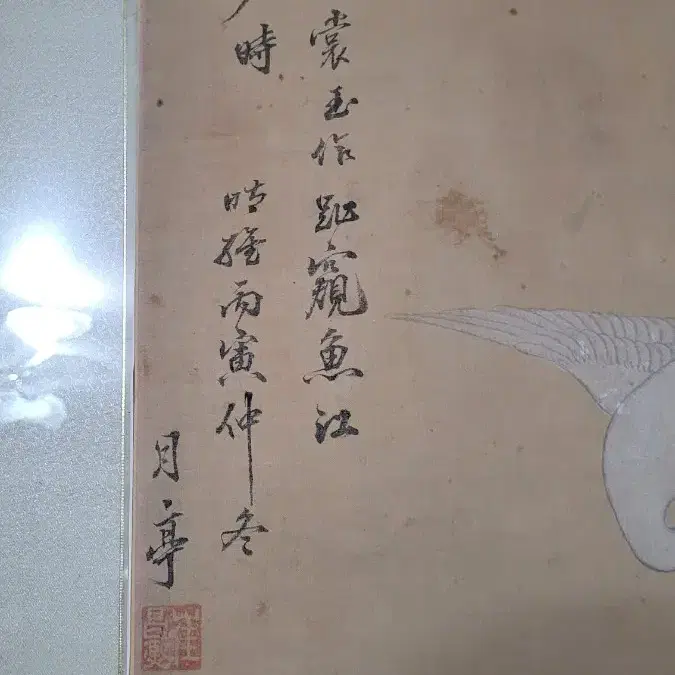 裳玉作趾窺魚江
時
時維丙寅仲冬
月亭